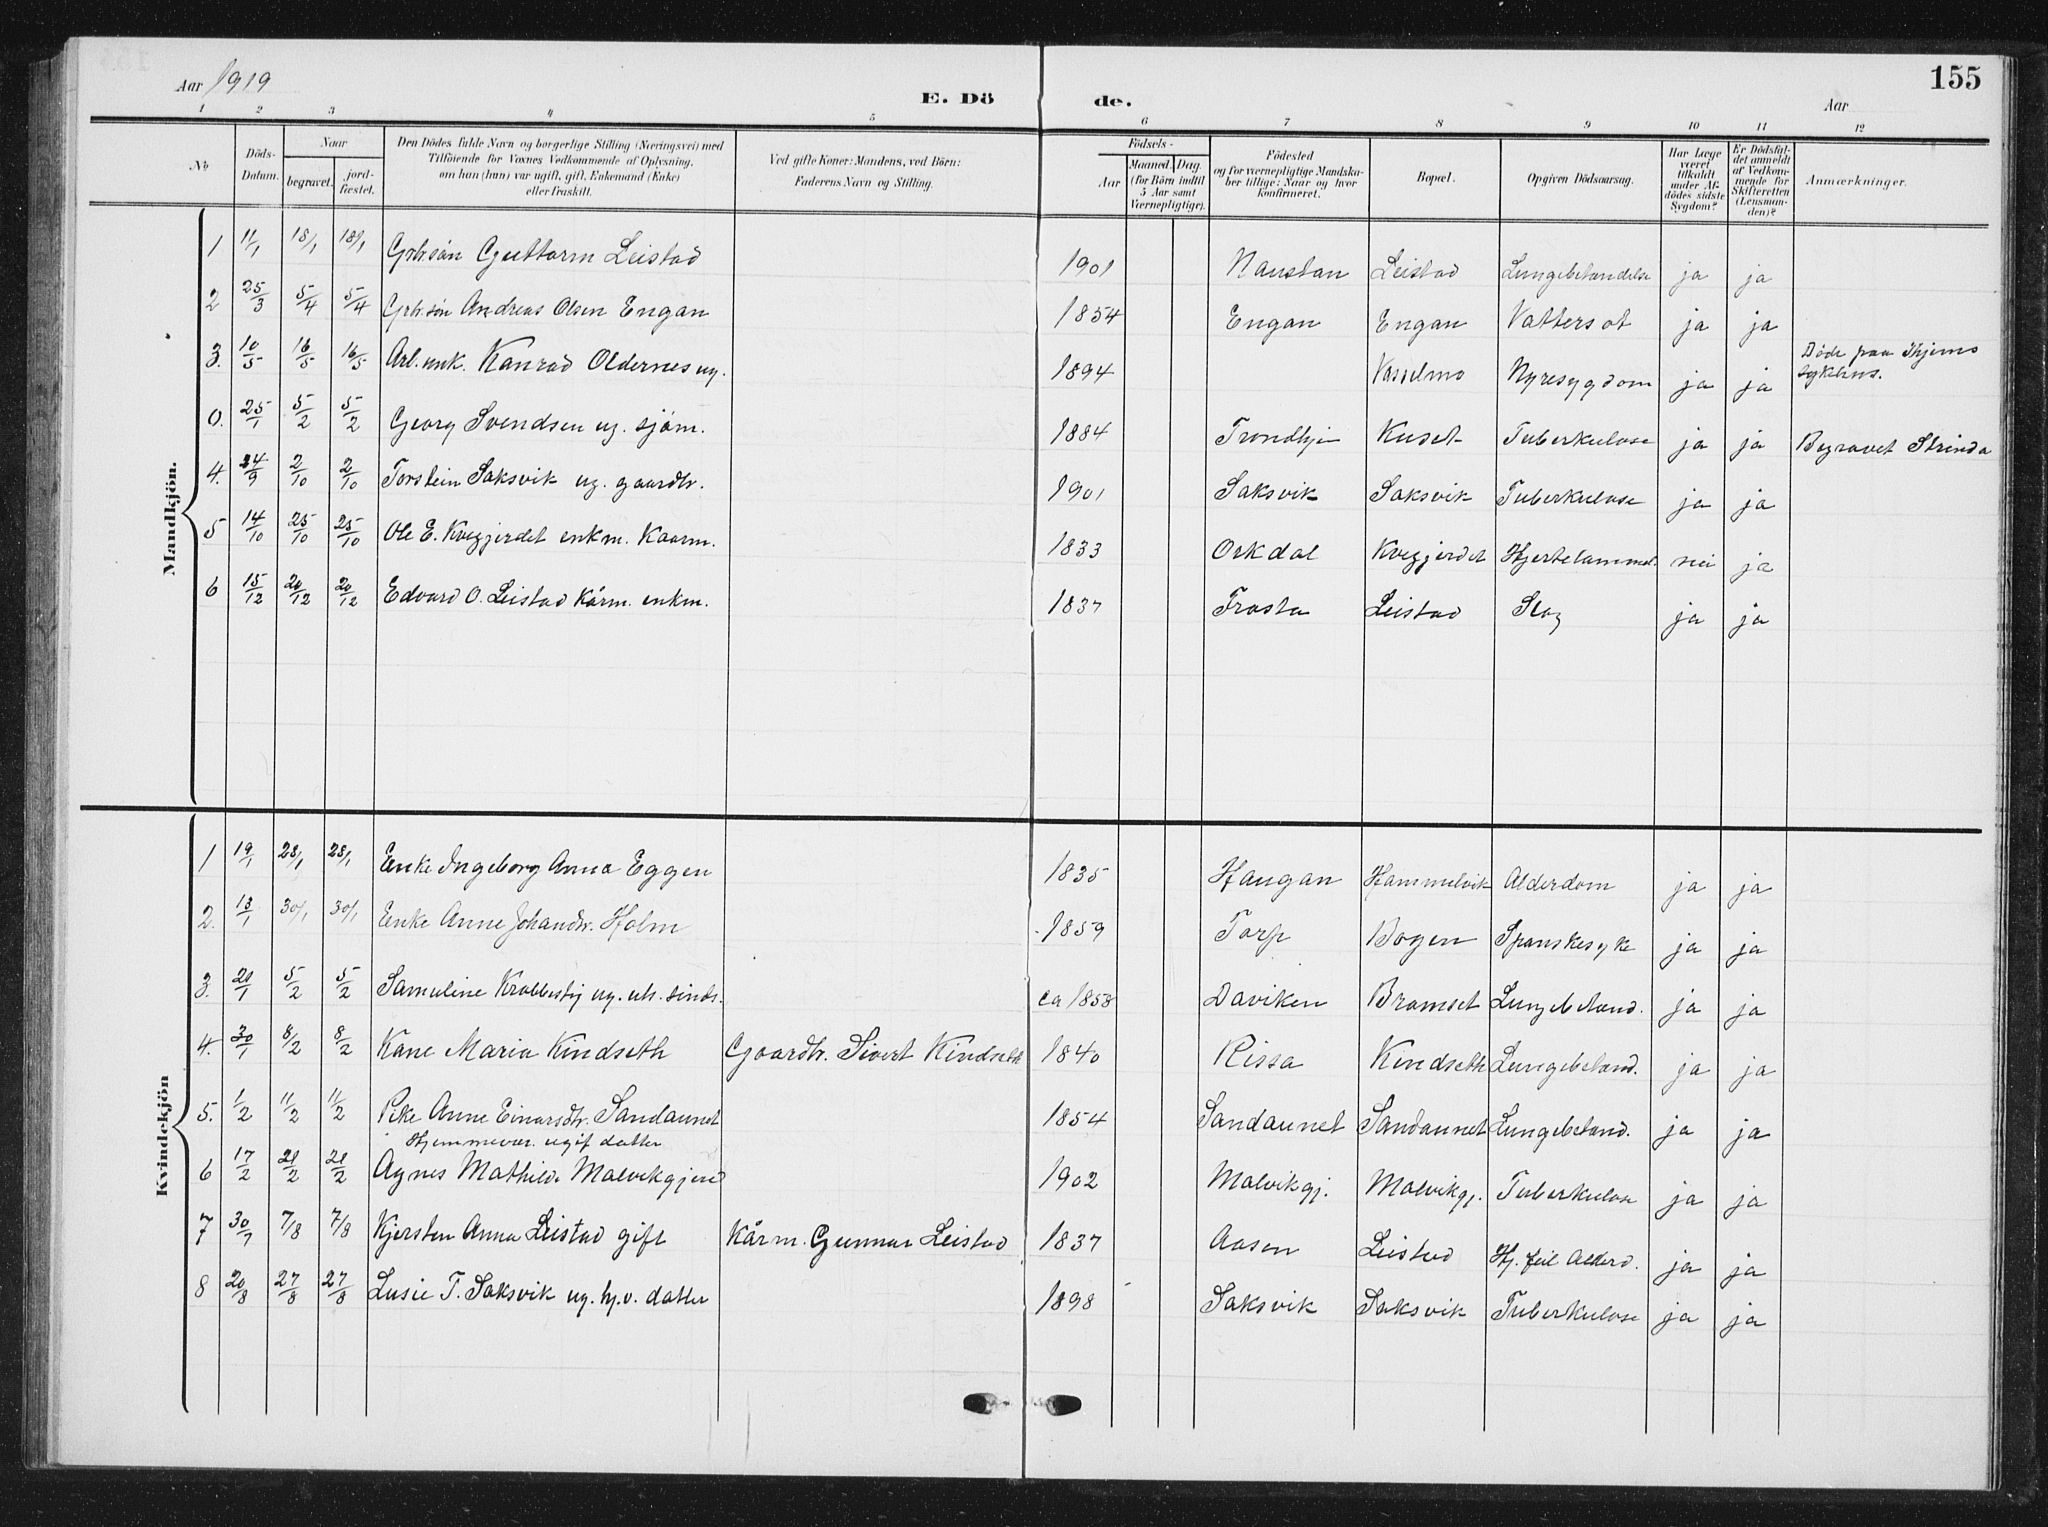 Aar 1919
E. Dö
de.
Aar
155
1 2 3 4 5 6 7 8 9 10 11 12
No
Döds-
Datum.
Naar
begravet.
jord-
fæstet.
Den Dödes fulde Navn og borgerlige Stilling (Næringsvei) med
Tilföiende for Voxnes Vedkommende af Oplysning.
om han (hun) var ugift, gift, Enkemand (Enke)
eller fraskilt.
Ved gifte Koner: Mandens, ved Börn:
Faderens Navn og Stilling.
Födsels-
Aar
Maaned. Dag.
(for Börn indtil
5 Aar samt
Værnepligtige).
Födested
og for værnepligtige Mandska-
ber tillige: Naar og hvor
konfirmeret.
Bopæl.
Opgiven Dödsaarsag.
Har Læge
været
tilkaldt
under Af-
dödes sidste
Sygdom?
Er Dödsfal-
det anmeldt
af Vedkom-
mende for
Skifteretten
(Lensman-
den)?
Anmærkninger.
Mandkjön.
1 11/1 18/1 18/1 Grbr.søn Guttorm Leistad 1901 Naustan Leistad Lungebetændelse ja ja
2 25/3 5/4 5/4 Grbr.søn Andreas Olsen Engan 1854 Engan Engan Vattersot ja ja
3. 10/5 16/5 16/5 Arb. enk. Konrad Oldernes ug. 1894 Vasselmo Nyresygdom ja ja Døde paa Thjems
Sykehus.
0. 25/1 5/2 5/2 Georg Svendsen ug. sjøm. 1884 Trondhj Kuset Tuberkulose ja ja Begravet Strinda
4. 24/9 2/10 2/10 Torstein Saksvik ug. gaardbr. 1901 Saksvik Saksvik Tuberkulose ja ja
5 14/10 25/10 25/10 Ole E. Kvegjerdet enkm. Kaarm. 1833 Orkdal Kvegjerdet Hjertelammel. nei ja
6 15/12 20/12 20/12 Edvard O. Leistad Kårm. enkm. 1837 Frosta Leistad Slag ja ja
Kvindekjön
1 19/1 28/1 28/1 Enke Ingeborg Anna Eggen 1835 Haugan Hammelvik Alderdom ja ja
2. 13/1 30/1 30/1 Enke Anne Johansdtr. Holm 1859 Torp Bogen Spanskesyke ja ja
3. 29/1 5/2 5/2 Samuline Krabbestig ug. sinds. ca 1858 Daviken Bromset Lungebetænd. ja ja
4. 30/1 8/2 8/2 Kone Maria Kindseth Gaardbr. Sivert Kindseth 1840 Rissa Kindseth Lungebetænd. ja ja
5. 1/2 11/2 11/2 Pike Anne Einarsdtr. Sandaunet 1854 Sandaunet Sandaunet Lungebetænd. ja ja
Hjemmevær. ugif datter
6 17/2 21/2 21/2 Agnes Mathilde Malvikgjerd 1902 Malvikgj. Malvikgj. Tuberkulose ja ja
7 30/7 7/8 7/8 Kjersten Anna Leistad gift Kårm. Gunnar Leistad 1837 Aasen Leistad Hj. feil Alderd. ja ja
8 20/8 27/8 27/8 Lusie T. Saksvik ug. hj.v. datter 1898 Saksvik Saksvik Tuberkulose ja ja